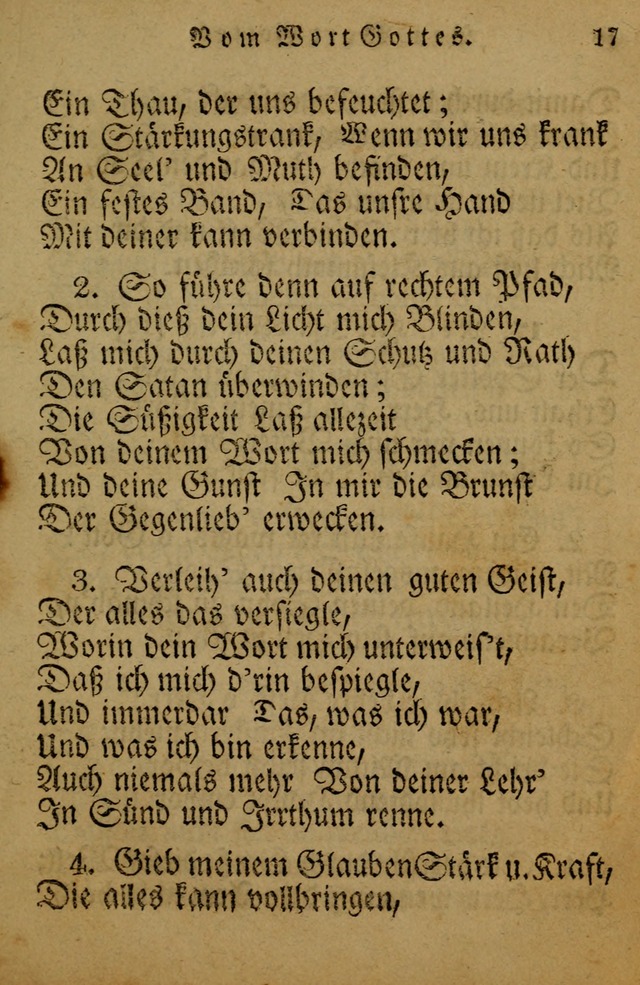 Vom Wort Gottes. 17
Ein Thau, der uns befeuchtet;
Ein Stärkungstrank, Wenn wir uns krank
An Seel' und Muth befinden,
Ein festes Band, Das unsre Hand
Mit deiner kann verbinden.
2. So führe denn auf rechtem Pfad,
Durch dieß dein Licht mich Blinden,
Laß mich durch deinen Schutz und Rath
Den Satan überwinden;
Die Süßigkeit Laß allezeit
Von deinem Wort mich schmecken;
Und deine Gunst In mir die Brunst
Der Gegenlieb' erwecken.
3. Verleih' auch deinen guten Geist,
Der alles das versiegle,
Worin dein Wort mich unterweis't,
Daß ich mich d'rin bespiegle,
Und immerdar Das, was ich war,
Und was ich bin erkenne,
Auch niemals mehr Von deiner Lehr'
In Sünd und Irrthum renne.
4. Gieb meinem Glauben Stärk u. Kraft,
Die alles kann vollbringen,